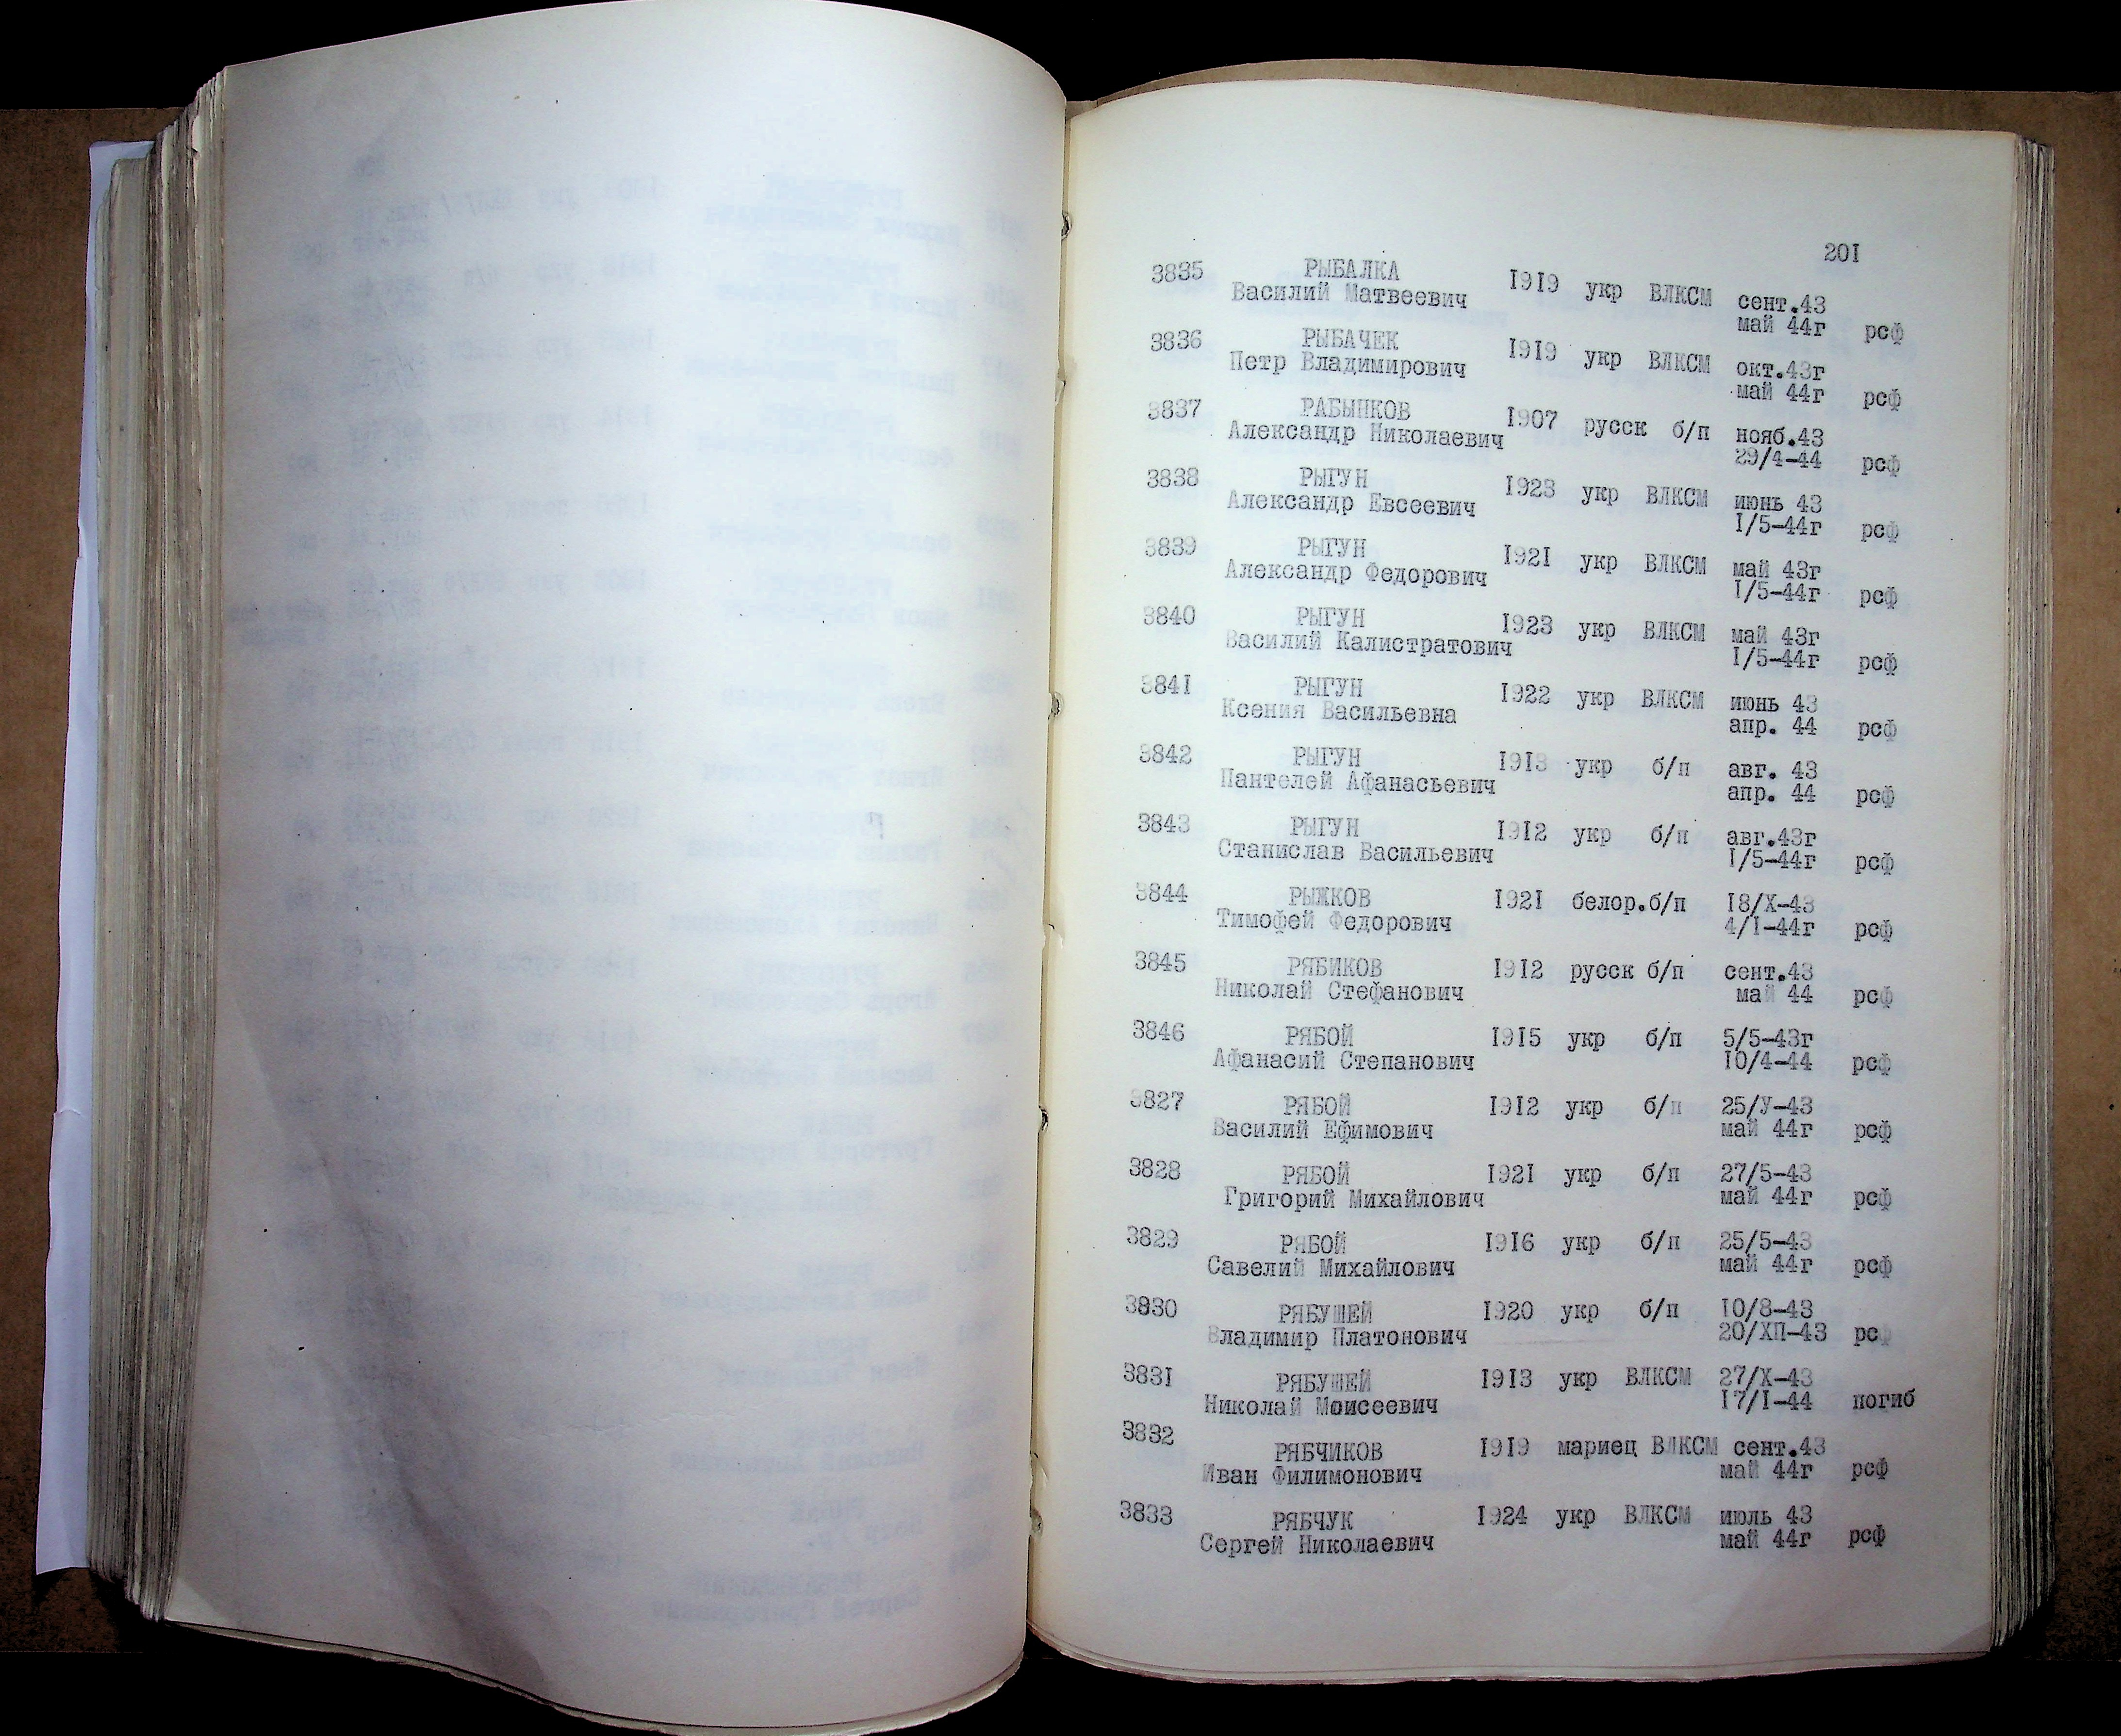 201
3835 РЫБАЛКА 1919 укр ВЛКСМ сент.43
Василий Матвеевич май 44г рсф
3836 РЫБАЧЕК 1919 укр ВЛКСМ окт.43г
Петр Владимирович май 44г рсф
3837 РАБЫНКОВ 1907 русск б/п нояб.43
Александр Николаевич 29/4-44 рсф
3838 РЫГУН 1923 укр ВЛКСМ июнь 43
Александр Евсеевич 1/5-44г рсф
3839 РЫГУН 1921 укр ВЛКСМ май 43г
Александр Федорович 1/5-44г рсф
3840 РЫГУН 1923 укр ВЛКСМ май 43г
Василий Калистратович 1/5-44г рсф
3841 РЫГУН 1922 укр ВЛКСМ июнь 43
Ксения Васильевна апр. 44 рсф
3842 РЫГУН 1913 укр б/п авг. 43
Пантелей Афанасьевич апр. 44 рсф
3843 РЫГУН 1912 укр б/п авг.43г
Станислав Васильевич 1/5-44г рсф
3844 РЫЖКОВ 1921 белор.б/п 18/X-43
Тимофей Федорович 4/1-44г рсф
3845 РЯБИКОВ 1912 русск б/п сент.43
Николай Стефанович май 44 рсф
3846 РЯБОЙ 1915 укр б/п 5/5-43г
Афанасий Степанович 10/4-44 рсф
3827 РЯБОЙ 1912 укр б/п 25/У-43
Василий Ефимович май 44г рсф
3828 РЯБОЙ 1921 укр б/п 27/5-43
Григорий Михайлович май 44г рсф
3829 РЯБОЙ 1916 укр б/п 25/5-43
Савелий Михайлович май 44г рсф
3830 РЯБУШЕЙ 1920 укр б/п 10/8-43
Владимир Платонович 20/ХП-43 рсф
3831 РЯБУШЕЙ 1913 укр ВЛКСМ 27/X-43
Николай Моисеевич 17/1-44 погиб
3832 РЯБЧИКОВ 1919 мариец ВЛКСМ сент.43
Иван Филимонович май 44г рсф
3833 РЯБЧУК 1924 укр ВЛКСМ июль 43
Сергей Николаевич май 44г рсф